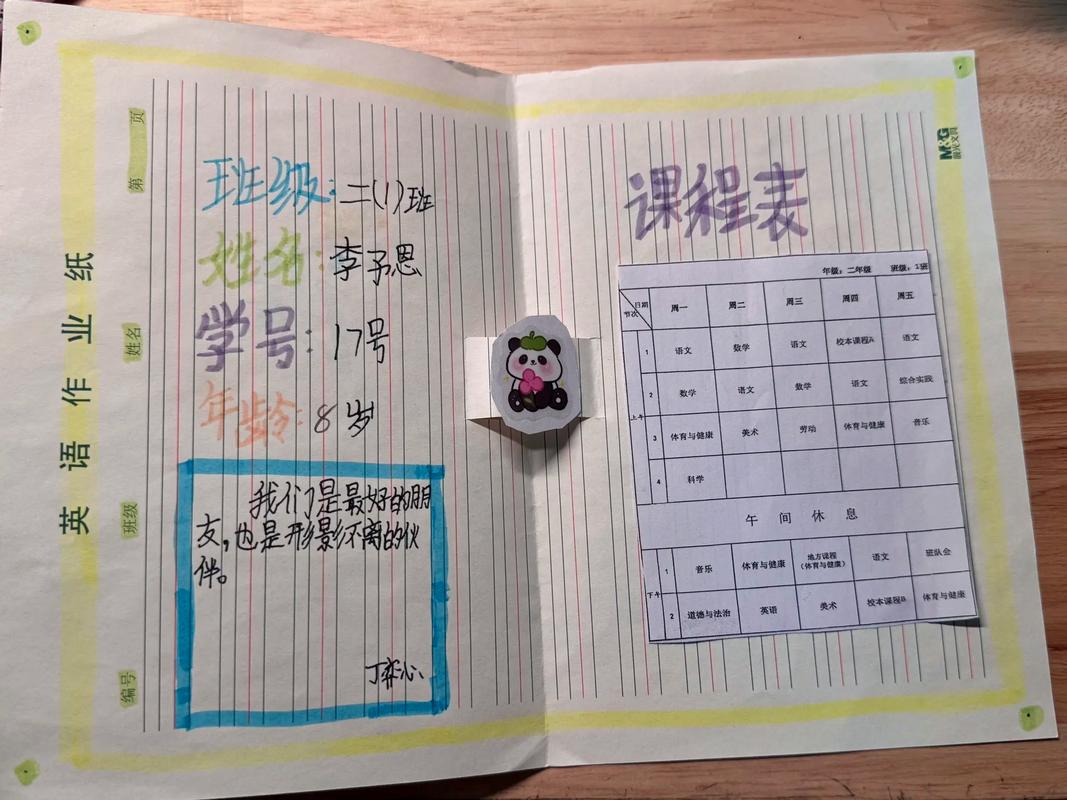 英语作业纸
第 页
姓名
班级
编号
班级：二(1)班
姓名：李予恩
学号：17号
年龄：8岁
我们是最好的朋
友，也是形影不离的伙
伴。
丁弈心
M&G
晨光文具
课程表
年级：二年级 班级：1班
日期 节次 周一 周二 周三 周四 周五
上午
1 语文 数学 语文 校本课程A 语文
2 数学 语文 数学 语文 综合实践
3 体育与健康 美术 劳动 体育与健康 音乐
4 科学
午间休息
下午
1 音乐 体育与健康 地方课程（体育与健康） 语文 班队会
2 道德与法治 英语 美术 校本课程B 体育与健康